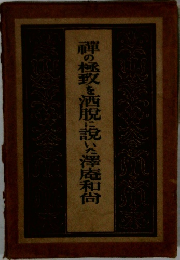 禪の極致を洒脱に說いた澤庵和尙